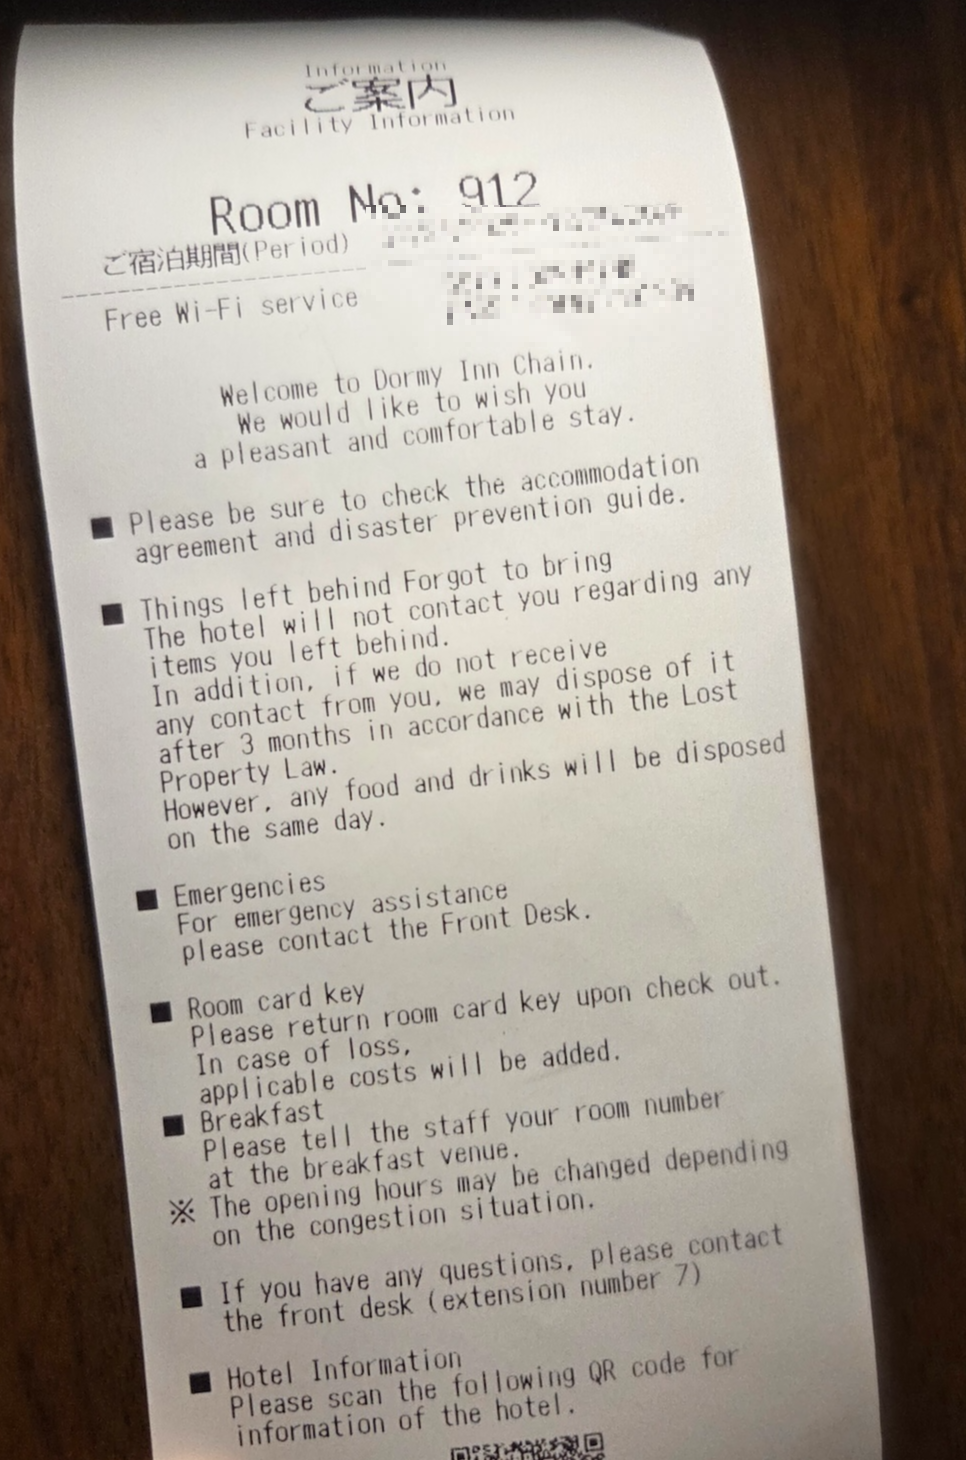 Information
ご案内
Facility Information
Room No: 912
ご宿泊期間(Period)
Free Wi-Fi service
Welcome to Dormy Inn Chain.
We would like to wish you
a pleasant and comfortable stay.
■ Please be sure to check the accommodation
agreement and disaster prevention guide.
■ Things left behind Forgot to bring
The hotel will not contact you regarding any
items you left behind.
In addition, if we do not receive
any contact from you, we may dispose of it
after 3 months in accordance with the Lost
Property Law.
However, any food and drinks will be disposed
on the same day.
■ Emergencies
For emergency assistance
please contact the Front Desk.
■ Room card key
Please return room card key upon check out.
In case of loss,
applicable costs will be added.
■ Breakfast
Please tell the staff your room number
at the breakfast venue.
※ The opening hours may be changed depending
on the congestion situation.
■ If you have any questions, please contact
the front desk (extension number 7)
■ Hotel Information
Please scan the following QR code for
information of the hotel.